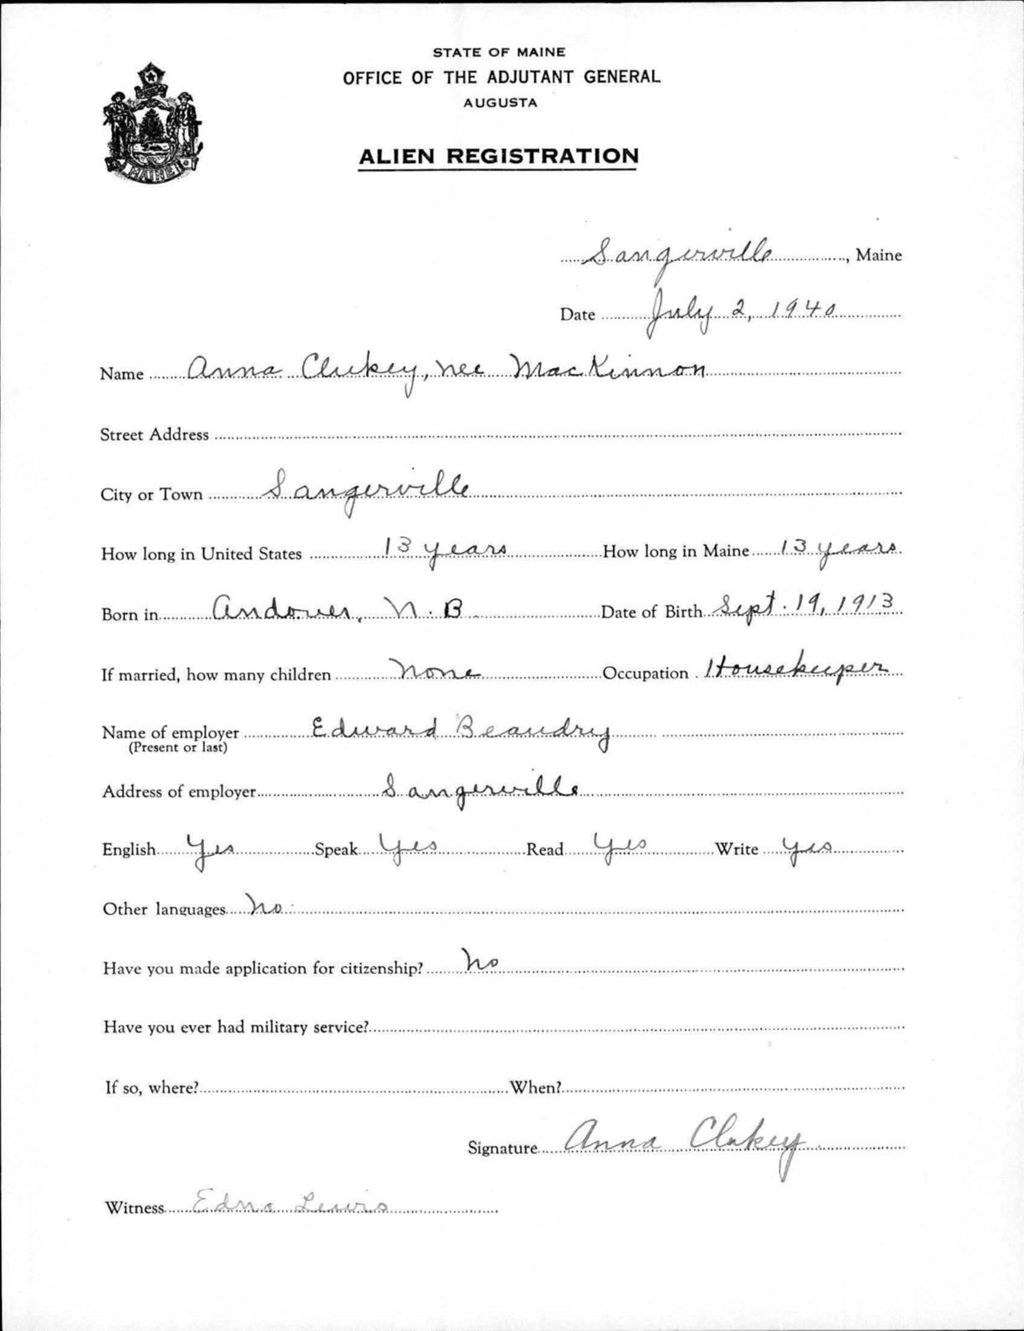 STATE OF MAINE
OFFICE OF THE ADJUTANT GENERAL
AUGUSTA
ALIEN REGISTRATION
MAINE
Sangerville, Maine
Date July 2, 1940
Name Anna Clukey, nee MacKinnon
Street Address
City or Town Sangerville
How long in United States 13 years How long in Maine 13 years
Born in Andover, N.B. Date of Birth Sept. 19, 1913
If married, how many children None Occupation Housekeeper
Name of employer Edward Beaudry
(Present or last)
Address of employer Sangerville
English Yes Speak Yes Read Yes Write Yes
Other languages No
Have you made application for citizenship? No
Have you ever had military service?
If so, where? When?
Signature Anna Clukey
Witness Edna Lewis